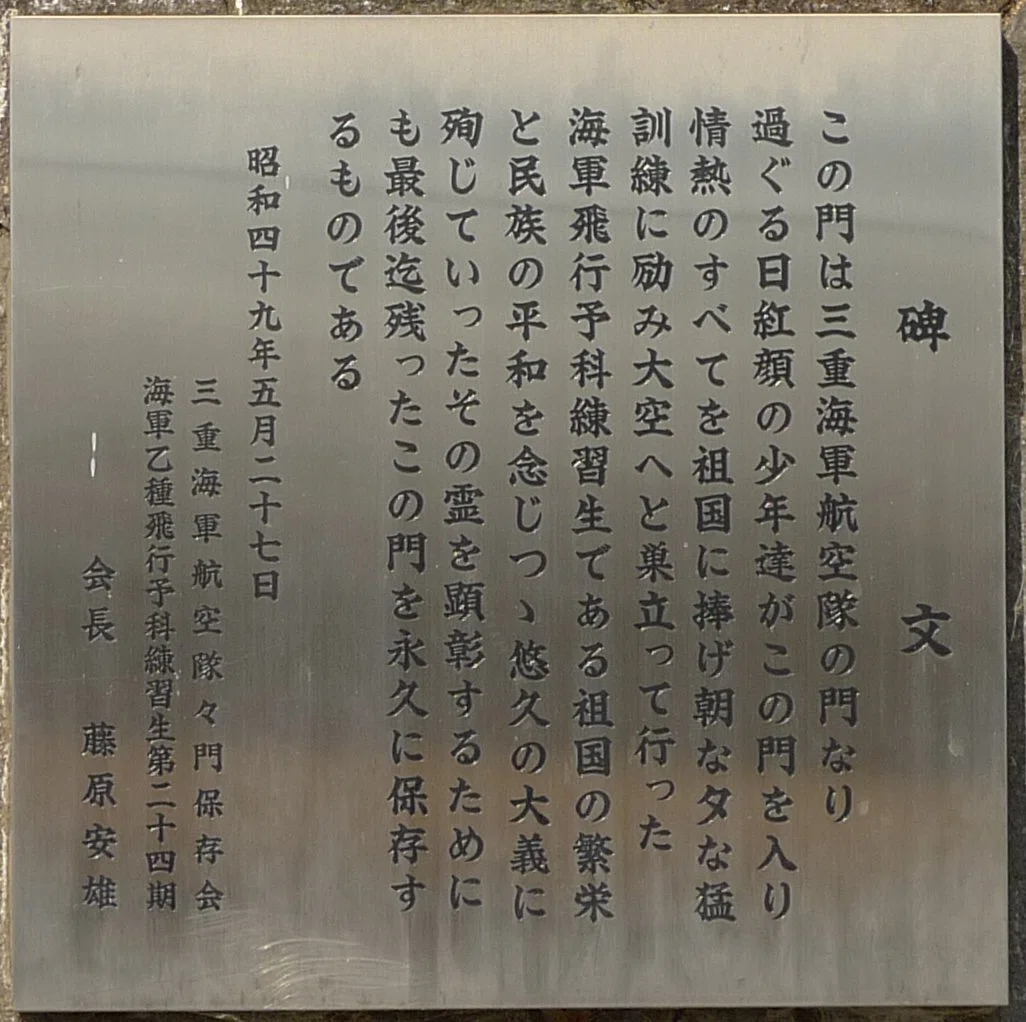 碑文
この門は三重海軍航空隊の門なり
過ぐる日紅顔の少年達がこの門を入り
情熱のすべてを祖国に捧げ朝な夕な猛
訓練に励み大空へと巣立って行った
海軍飛行予科練習生である祖国の繁栄
と民族の平和を念じつゝ悠久の大義に
殉じていったその霊を顕彰するために
も最後迄残ったこの門を永久に保存す
るものである
昭和四十九年五月二十七日
三重海軍航空隊々門保存会
海軍乙種飛行予科練習生第二十四期
会長 藤原安雄